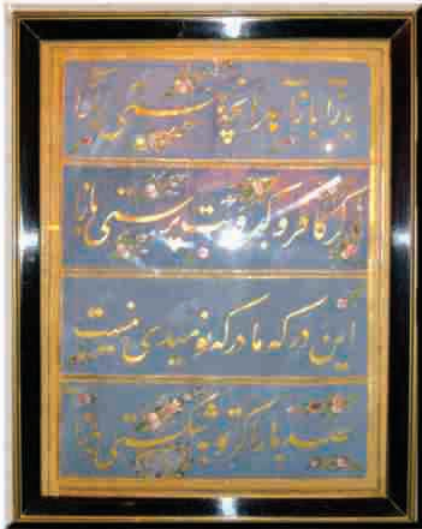 بازآ بازآ هر آنچه هستی بازآ
گر کافر و گبر و بت پرستی بازآ
این درگه ما درگه نومیدی نیست
صد بار اگر توبه شکستی بازآ